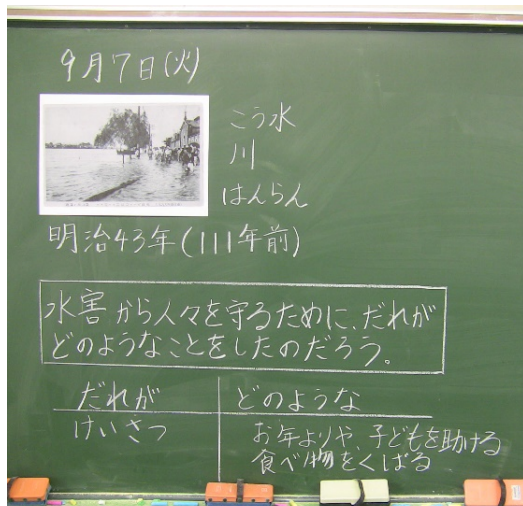 9月7日(火)
こう水
川
はんらん
明治43年(111年前)
水害から人々を守るために、だれが
どのようなことをしたのだろう。
だれが
どのような
けいさつ
お年よりや、子どもを助ける
食べ物をくばる